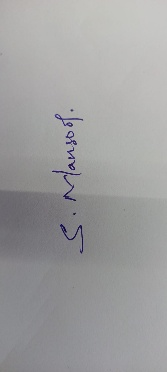 S. Mansoor.